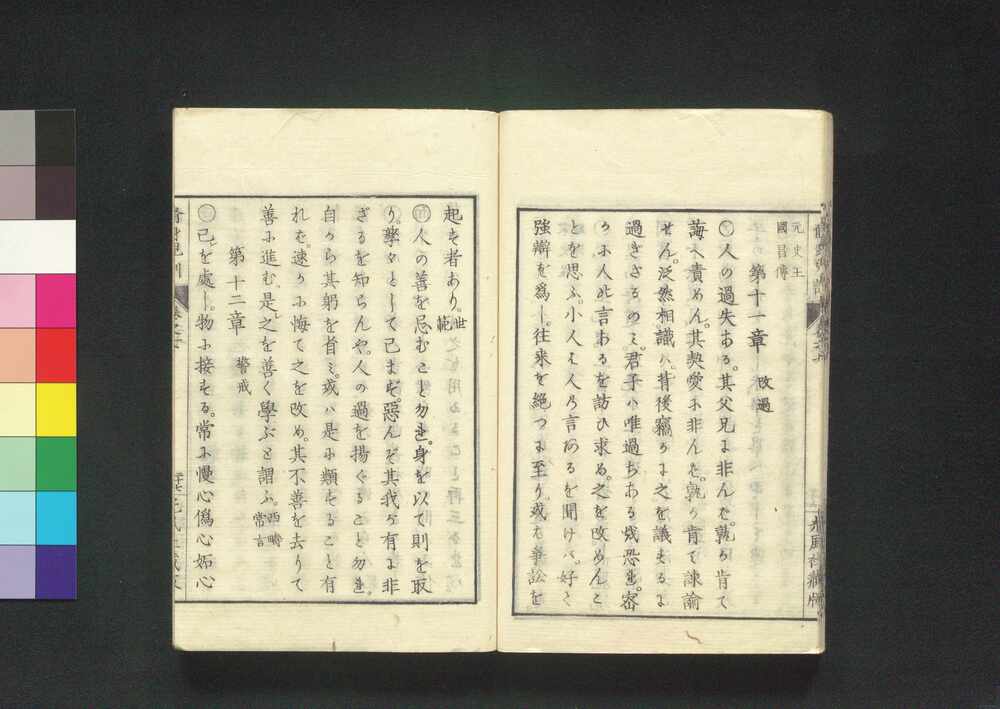 元史王
國昌傳
第十一章　改過
○人の過失ある。其父兄に非んを。孰か肯て
誨へ責めん。其契愛に非んを。孰か肯て諫諭
せん。泛然相識ハ。背後竊かに之を議するに
過ぎざるのミ。君子ハ唯過ちある或恐る。密
かに人此言あるを訪ひ求め。之を改めんこ
とを思ふ。小人は人乃言あるを聞けバ。好く
強辯を爲し。往来を絶つに至り。或ハ爭訟を
起す者あり。世範
○人の善を忌むこと勿れ。身を以て則を取
り。孳々として己まず。惡んぞ其我が有に非
ざるを知らんや。人の過を揚ぐること勿れ。
自から其躬を省ミ。或ハ是に類すること有
れを。速かに悔て之を改め。其不善を去りて
善に進む。是之を善く學ぶと謂ふ。西疇常言
第十二章　警戒
○己を處し。物に接する。常に慢心僞心妬心